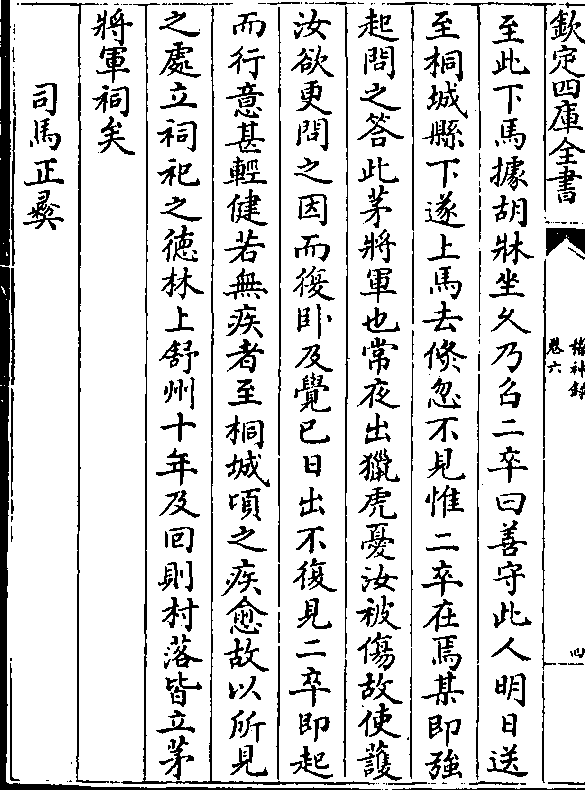 欽定四庫全書
稽神錄
卷六
四
至此下馬據胡牀坐久乃召二卒曰善守此人明日送
至桐城縣下遂上馬去倐忽不見惟二卒在焉某即強
起問之答此茅將軍也常夜出獵虎憂汝被傷故使護
汝欲更問之因而復卧及覺已日出不復見二卒即起
而行意甚輕健若無疾者至桐城頃之疾愈故以所見
之處立祠祀之德林上舒州十年及回則村落皆立茅
將軍祠矣
司馬正彛